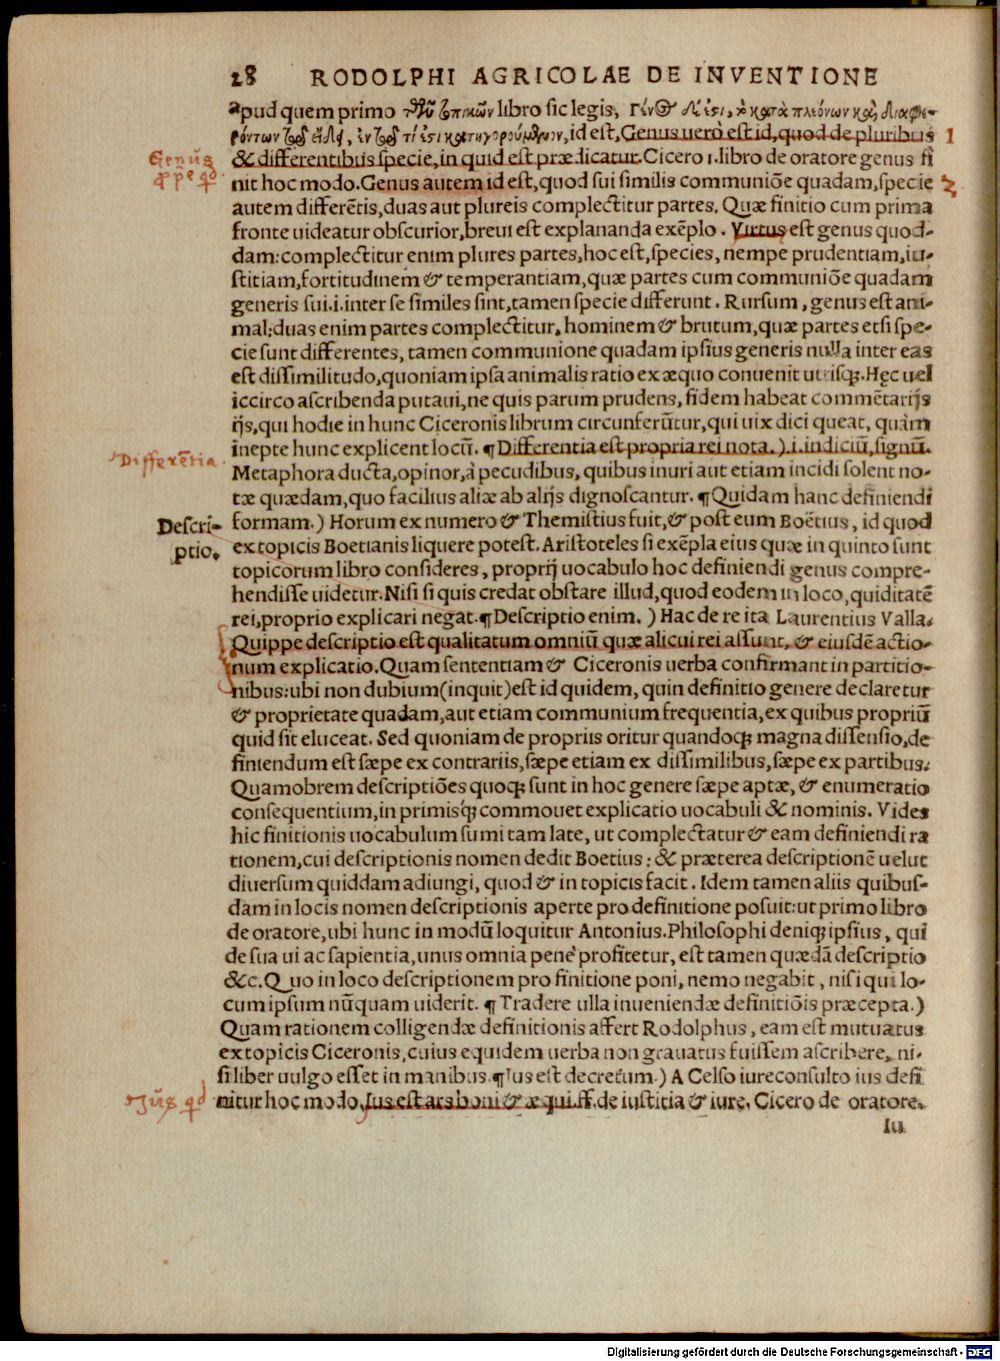 28 RODOLPHI AGRICOLAE DE INVENTIONE
apud quem primo τῶν τοπικῶν libro sic legis, Γένος δέ ἐστι, τὸ κατὰ πλεόνων καὶ διαφε-
ρόντων τῷ εἴδει, ἐν τῷ τί ἐστι κατηγορούμενον, id est, Genus uero est id, quod de pluribus 1
& differentibus specie, in quid est prædicatur. Cicero 1. libro de oratore genus fi
Genus
nit hoc modo. Genus autem id est, quod sui similis communiõe quadam, specie 2
autem differẽtis, duas aut plureis complectitur partes. Quæ finitio cum prima
fronte uideatur obscurior, breui est explananda exẽplo. Virtus est genus quod-
dam: complectitur enim plures partes, hoc est, species, nempe prudentiam, iu-
stitiam, fortitudinem & temperantiam, quæ partes cum communiõe quadam
generis sui .i. inter se similes sint, tamen specie differunt. Rursum, genus est ani-
mal: duas enim partes complectitur, hominem & brutum, quæ partes etsi spe-
cie sunt differentes, tamen communione quadam ipsius generis nulla inter eas
est dissimilitudo, quoniam ipsa animalis ratio ex æquo conuenit utrisqꝫ. Hęc uel
iccirco ascribenda putaui, ne quis parum prudens, fidem habeat commẽtarijs
ijs, qui hodie in hunc Ciceronis librum circunferũtur, qui uix dici queat, quàm
inepte hunc explicent locũ. ¶ Differentia est propria rei nota.) .i. indiciũ, signũ.
Differẽtia
Metaphora ducta, opinor, à pecudibus, quibus inuri aut etiam incidi solent no-
tæ quædam, quo facilius aliæ ab alijs dignoscantur. ¶ Quidam hanc definiendi
Descri-
formam.) Horum ex numero & Themistius fuit, & post eum Boẽtius, id quod
ptio.
ex topicis Boetianis liquere potest. Aristoteles si exẽpla eius quæ in quinto sunt
topicorum libro consideres, proprij uocabulo hoc definiendi genus compre-
hendisse uidetur. Nisi si quis credat obstare illud, quod eodem in loco, quiditatẽ
rei, proprio explicari negat. ¶ Descriptio enim.) Hac de re ita Laurentius Valla.
Quippe descriptio est qualitatum omniũ quæ alicui rei assunt, & eiusdẽ actio-
num explicatio. Quam sententiam & Ciceronis uerba confirmant in partitio-
nibus: ubi non dubium (inquit) est id quidem, quin definitio genere declaretur
& proprietate quadam, aut etiam communium frequentia, ex quibus propriũ
quid sit eluceat. Sed quoniam de propriis oritur quandoqꝫ magna dissensio, de
finiendum est sæpe ex contrariis, sæpe etiam ex dissimilibus, sæpe ex partibus.
Quamobrem descriptiões quoqꝫ sunt in hoc genere sæpe aptæ, & enumeratio
consequentium, in primisqꝫ commouet explicatio uocabuli & nominis. Vides
hic finitionis uocabulum sumi tam late, ut complectatur & eam definiendi ra
tionem, cui descriptionis nomen dedit Boetius: & præterea descriptionẽ uelut
diuersum quiddam adiungi, quod & in topicis facit. Idem tamen aliis quibus-
dam in locis nomen descriptionis aperte pro definitione posuit: ut primo libro
de oratore, ubi hunc in modũ loquitur Antonius. Philosophi deniqꝫ ipsius, qui
de sua ui ac sapientia, unus omnia pene profitetur, est tamen quædã descriptio
&c. Quo in loco descriptionem pro finitione poni, nemo negabit, nisi qui lo-
cum ipsum nũquam uiderit. ¶ Tradere ulla inueniendæ definitiõis præcepta.)
Quam rationem colligendæ definitionis affert Rodolphus, eam est mutuatus
ex topicis Ciceronis, cuius equidem uerba non grauatus fuissem ascribere, ni-
si liber uulgo esset in manibus. ¶ Ius est decretum.) A Celso iureconsulto ius defi
Jus qd
nitur hoc modo, Ius est ars boni & æqui. ff. de iustitia & iure. Cicero de oratore.
Iu
Digitalisierung gefördert durch die Deutsche Forschungsgemeinschaft - DFG